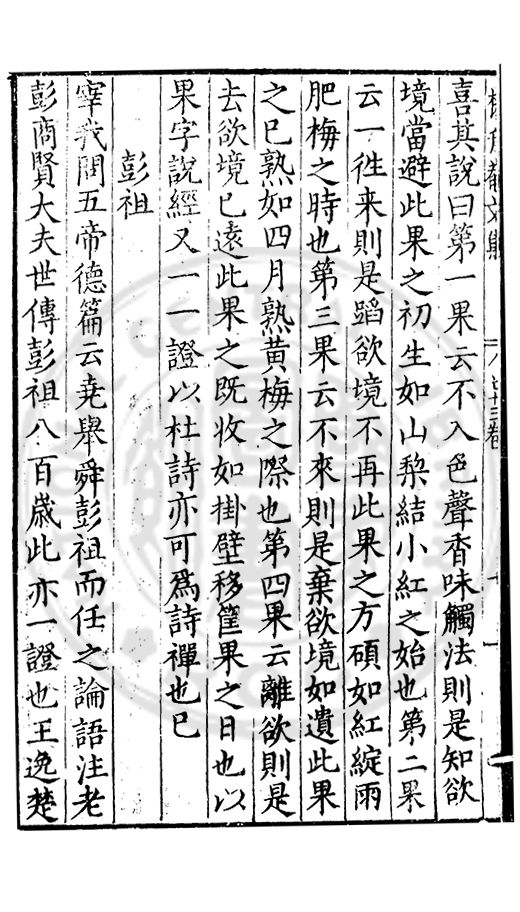 喜其說曰第一果云不入色聲香味觸法則是知欲
境當避此果之初生如山梨結小紅之始也第二果
云一徃来則是蹈欲境不再此果之方碩如紅綻雨
肥梅之時也第三果云不來則是棄欲境如遺此果
之已熟如四月熟黃梅之際也第四果云離欲則是
去欲境已遠此果之既收如掛壁移筐果之日也以
果字說經又一一證以杜詩亦可為詩禪也已
彭祖
宰我問五帝德篇云堯舉舜彭祖而任之論語注老
彭商賢大夫世傳彭祖八百歲此亦一證也王逸楚